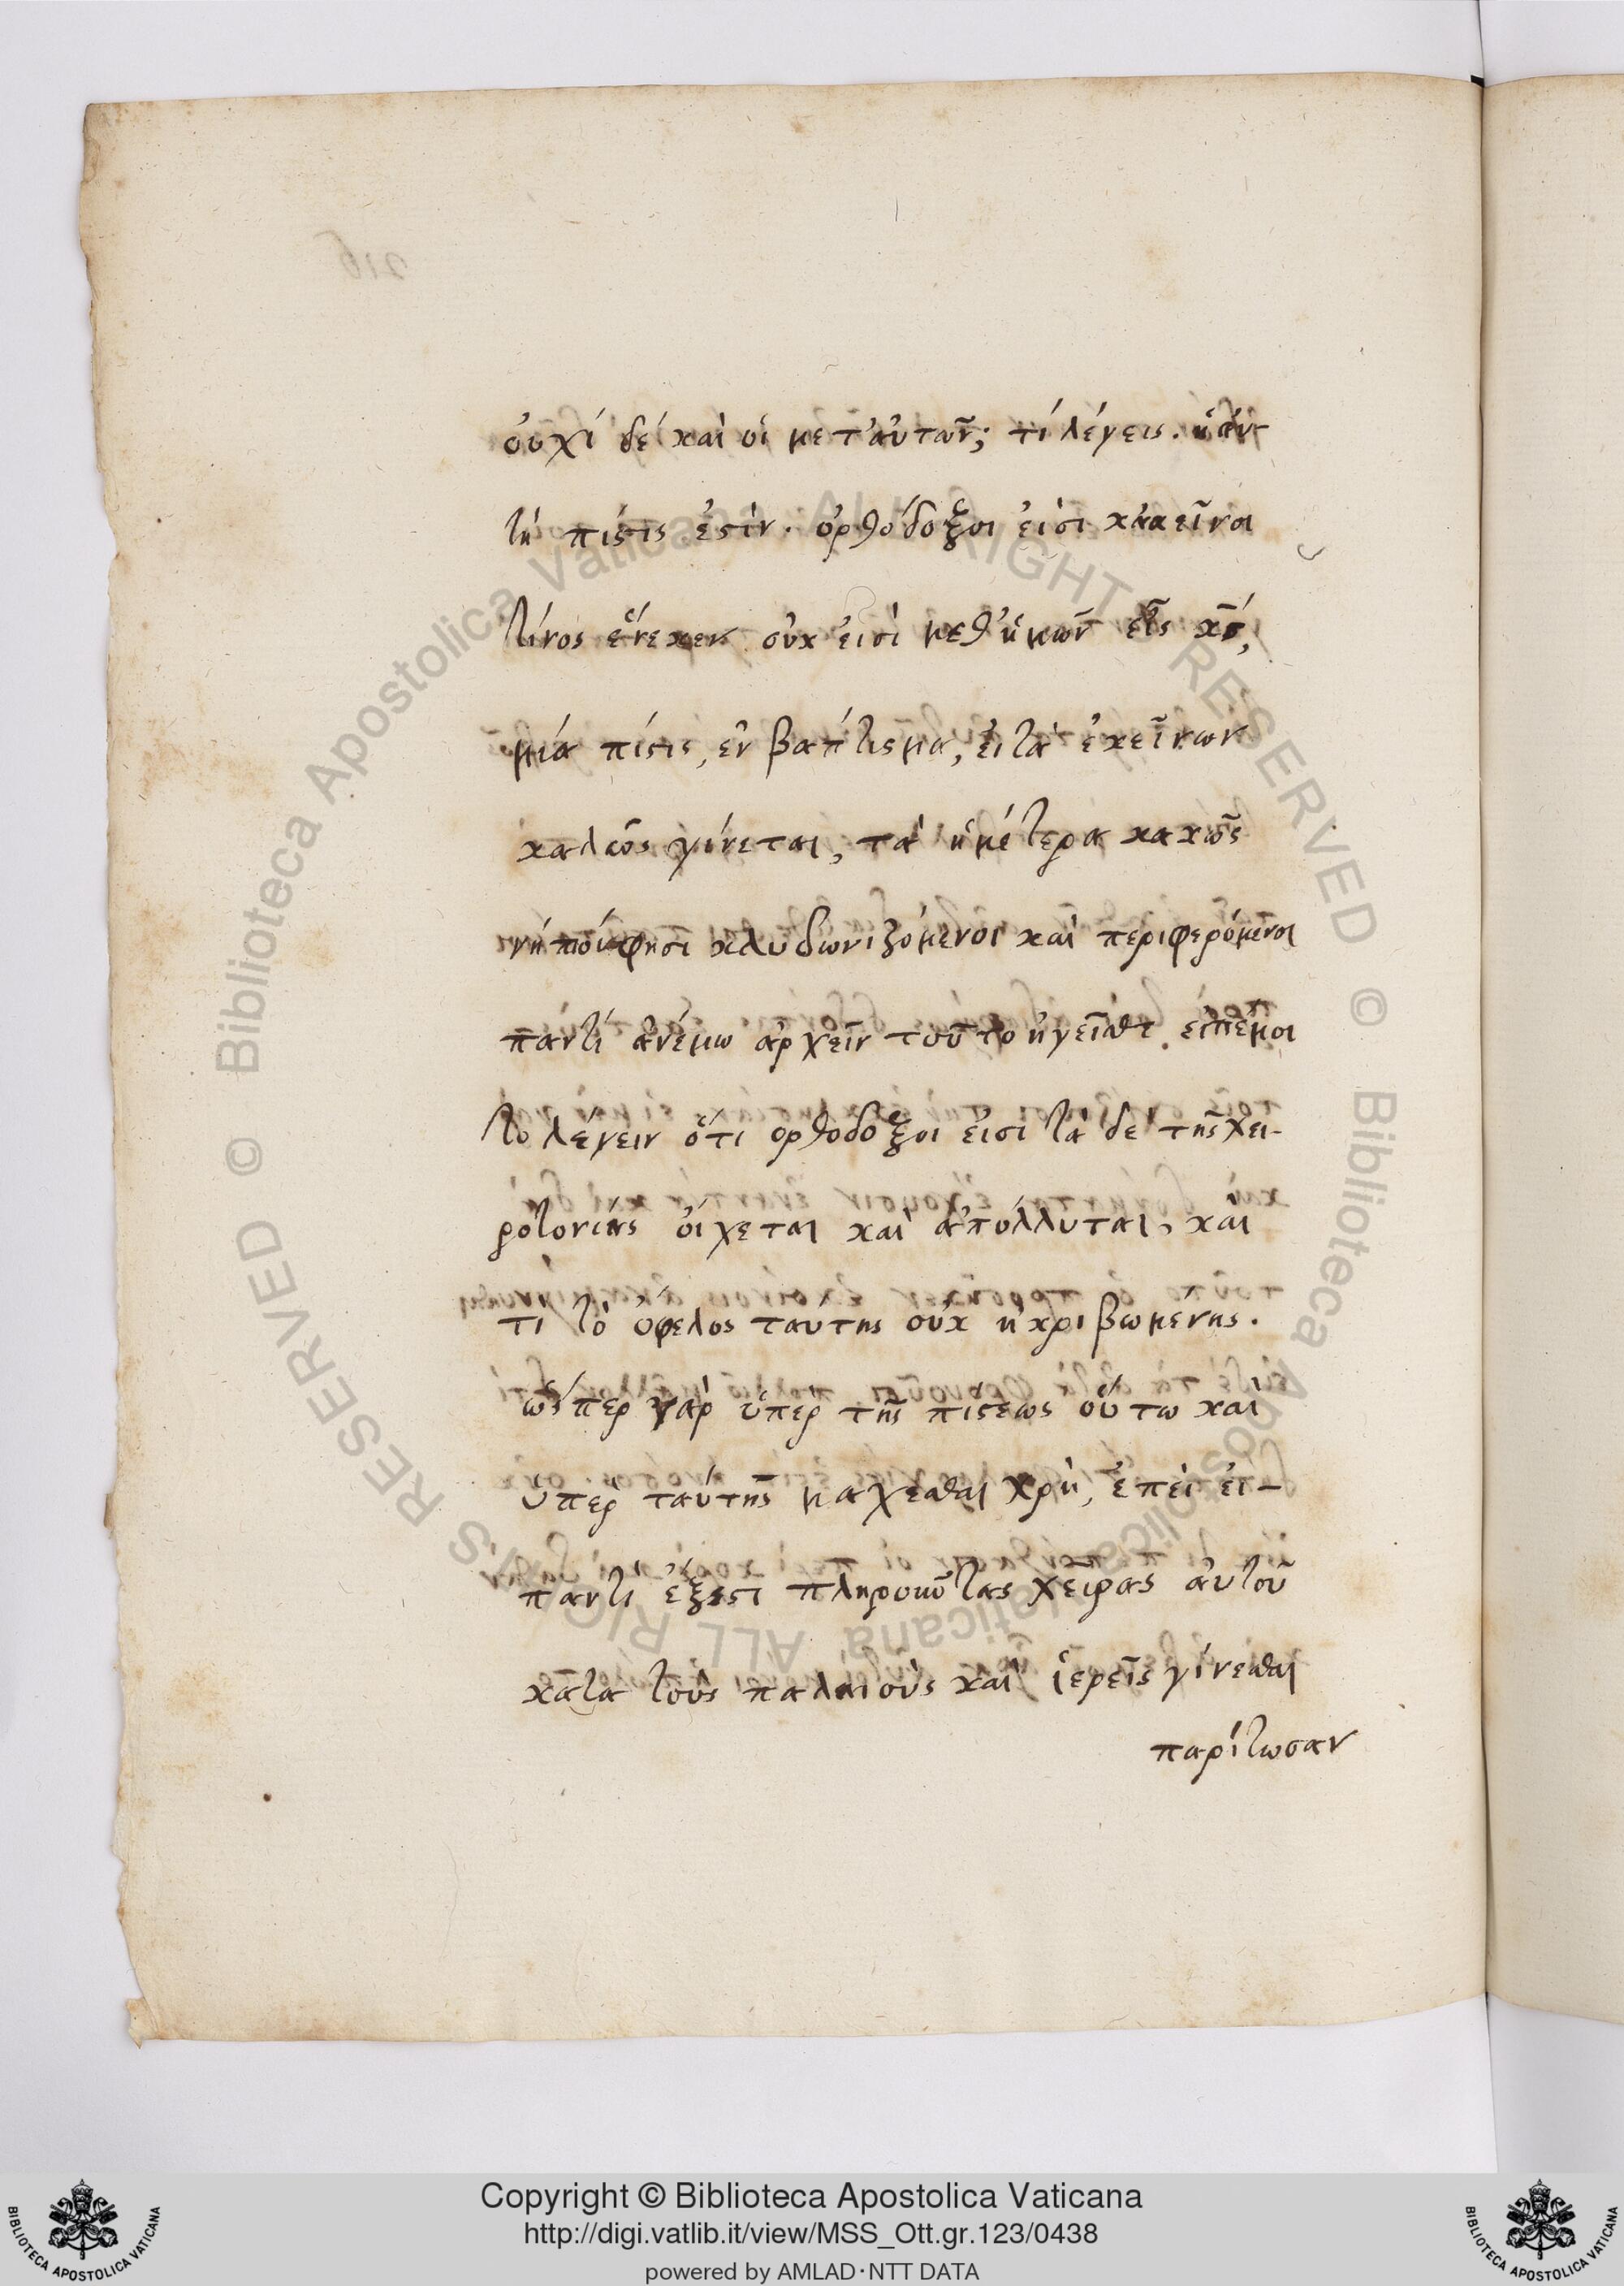 οὐχί δεί καὶ οἱ μετ' αὐτῶν; τί λέγεις. ἡ ἀυ
τὴ πίστις ἐστὶν. ὀρθόδοξοι εἰσι κακεῖνοι
τίνος ἕνεκεν οὐκ εἰσὶ μεθ' ἡμῶν εἷς κ̅ς̅,
μία πίστις, ἓν βαπτισμα, εἰ τὰ ἐκεῖνων
καλῶς γίνεται, τὰ ἡμέτερα κακῶς
νήπιοι φησι κλυδωνιζόμενοι καὶ περιφερόμενοι
παντὶ ἀνέμω ἀρκεῖν τοῦτο ἡγεῖσθε. εἰπέ μοι
το λέγειν ὅτι ορθοδοξοι εἰσι τὰ δε τῆς χει-
ροτονίας οἴχεται καὶ ἀπόλλυται, καὶ
τι τὸ όφελος ταύτης οὐκ ἠκριβωμένης.
ὥσπερ γὰρ ὑπὲρ τῆς πίστεως οὕτω καὶ
ὑπὲρ ταύτης μαχεσθαι χρὴ, ἐπεὶ εἰ-
παντὶ ἔξεστι πληροῦν τας χεῖρας ἀυτοῦ
κατα τοὺς παλαιοὺς καὶ ἱερεῖς γίνεσθαι
παρίτωσαν
Copyright © Biblioteca Apostolica Vaticana
http://digi.vatlib.it/view/MSS_Ott.gr.123/0438
powered by AMLAD·NTT DATA